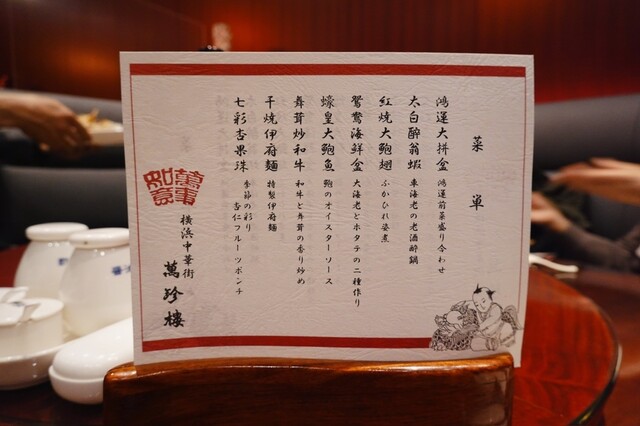 菜単
鴻運大拼盆 鴻運前菜盛り合わせ
太白醉翁蝦 車海老の老酒醉鍋
紅焼大鮑翅 ふかひれ姿煮
鴛鴦海鮮盒 大海老とホタテの二種作り
蠔皇大鮑魚 鮑のオイスターソース
舞茸炒和牛 和牛と舞茸の香り炒め
干焼伊府麺 特製伊府麺
七彩杏果珠 季節の彩り 杏仁フルーツポンチ
萬事如意
横浜中華街
萬珍樓